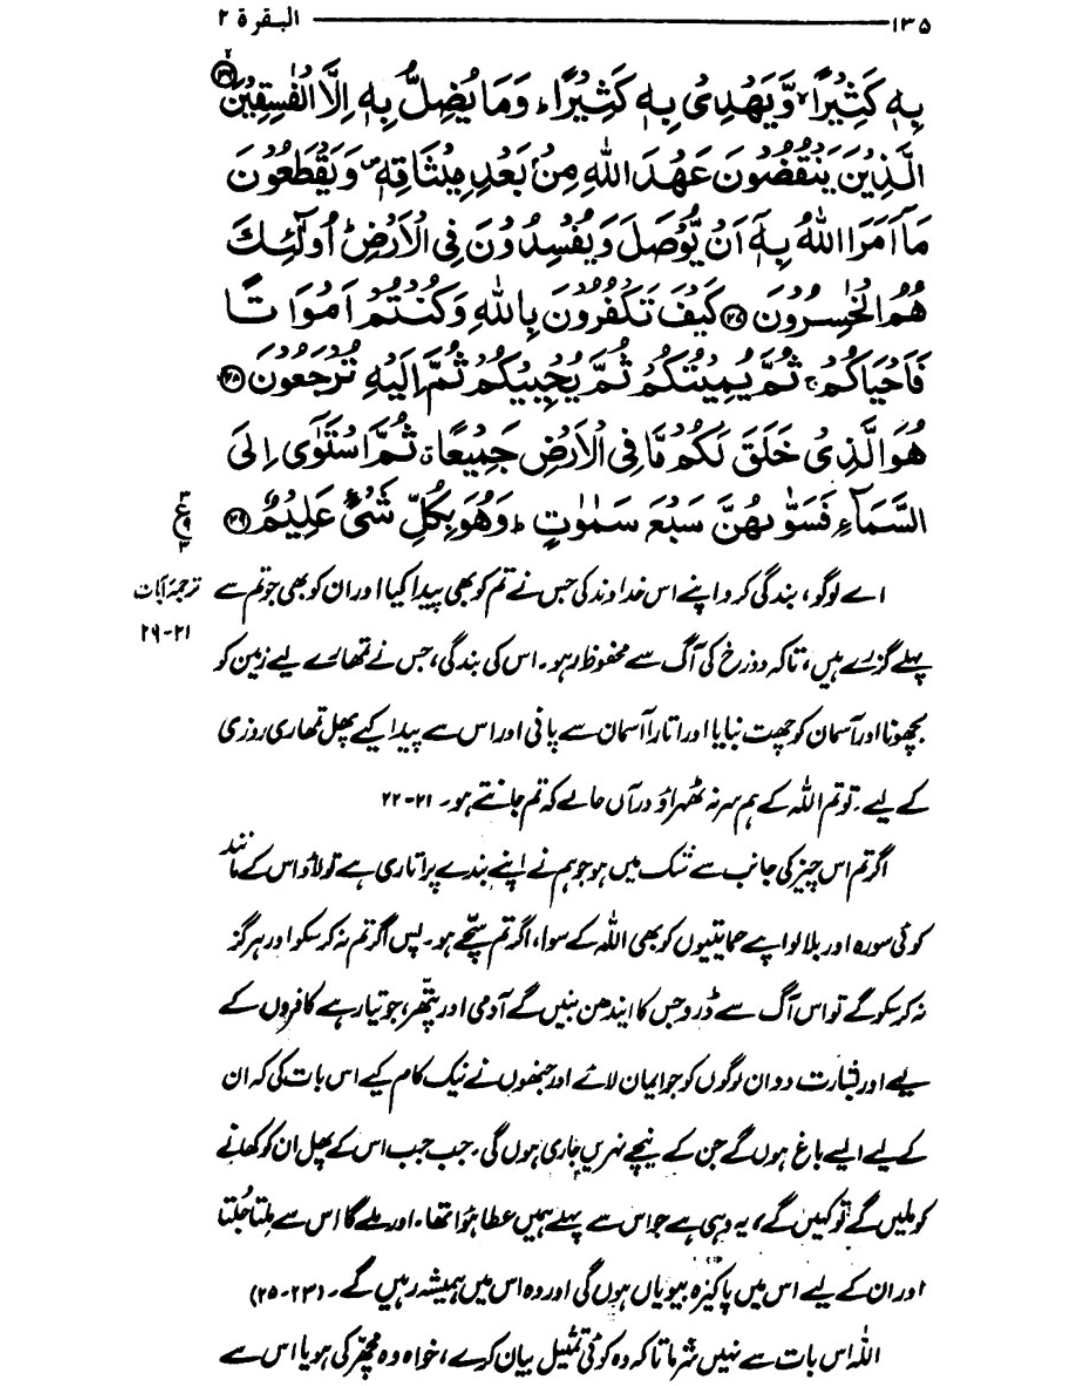 ۱۳۵ البقرة ۲
بِهٖ كَثِيْرًا ۙ وَّيَهْدِىْ بِهٖ كَثِيْرًا ؕ وَمَا يُضِلُّ بِهٖٓ اِلَّا الْفٰسِقِيْنَ ۟ۙ۲۶
الَّذِيْنَ يَنْقُضُوْنَ عَهْدَ اللّٰهِ مِنْۢ بَعْدِ مِيْثَاقِهٖ ۪ وَيَقْطَعُوْنَ
مَآ اَمَرَ اللّٰهُ بِهٖٓ اَنْ يُّوْصَلَ وَيُفْسِدُوْنَ فِى الْاَرْضِ ؕ اُولٰٓئِكَ
هُمُ الْخٰسِرُوْنَ ۟۲۷ كَيْفَ تَكْفُرُوْنَ بِاللّٰهِ وَكُنْتُمْ اَمْوَاتًا
فَاَحْيَاكُمْ ۚ ثُمَّ يُمِيْتُكُمْ ثُمَّ يُحْيِيْكُمْ ثُمَّ اِلَيْهِ تُرْجَعُوْنَ ۟۲۸
هُوَ الَّذِىْ خَلَقَ لَكُمْ مَّا فِى الْاَرْضِ جَمِيْعًا ۤ ثُمَّ اسْتَوٰٓى اِلَى
السَّمَآءِ فَسَوّٰىهُنَّ سَبْعَ سَمٰوٰتٍ ؕ وَهُوَ بِكُلِّ شَىْءٍ عَلِيْمٌ ۟۲۹
۳ ع ۹ ۳
اے لوگو، بندگی کرو اپنے اس خداوند کی جس نے تم کو بھی پیدا کیا اور ان کو بھی جو تم سے
ترجمۂ آیات
۲۱-۲۹
پہلے گزرے ہیں، تاکہ دوزخ کی آگ سے محفوظ رہو۔ اس کی بندگی، جس نے تمھارے لیے زمین کو
بچھونا اور آسمان کو چھت بنایا اور اتارا آسمان سے پانی اور اس سے پیدا کیے پھل تمھاری روزی
کے لیے۔ تو تم اللہ کے ہم سر نہ ٹھہراؤ درآں حالے کہ تم جانتے ہو۔ ۲۱-۲۲
اگر تم اس چیز کی جانب سے شک میں ہو جو ہم نے اپنے بندے پر اتاری ہے تو لاؤ اس کے مانند
کوئی سورہ اور بلا لو اپنے حمایتیوں کو بھی اللہ کے سوا، اگر تم سچے ہو۔ پس اگر تم نہ کر سکو اور ہرگز
نہ کر سکو گے تو اس آگ سے ڈرو جس کا ایندھن بنیں گے آدمی اور پتھر، جو تیار ہے کافروں کے
لیے اور بشارت دو ان لوگوں کو جو ایمان لائے اور جنھوں نے نیک کام کیے اس بات کی کہ ان
کے لیے ایسے باغ ہوں گے جن کے نیچے نہریں جاری ہوں گی۔ جب جب اس کے پھل ان کو کھانے
کو ملیں گے تو کہیں گے، یہ وہی ہے جو اس سے پہلے ہمیں عطا ہوا تھا۔ اور ملے گا اس سے ملتا جُلتا
اور ان کے لیے اس میں پاکیزہ بیویاں ہوں گی اور وہ اس میں ہمیشہ رہیں گے۔ (۲۳-۲۵)
اللہ اس بات سے نہیں شرماتا کہ وہ کوئی تمثیل بیان کرے، خواہ وہ مچھر کی ہو یا اس سے